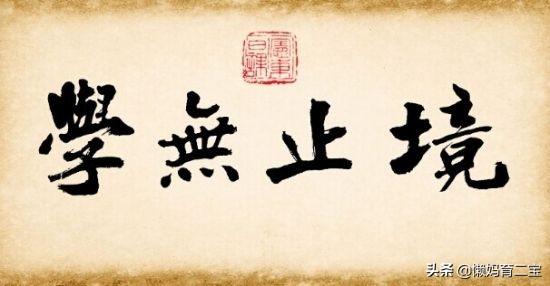 學無止境
头条 @懒妈育二宝